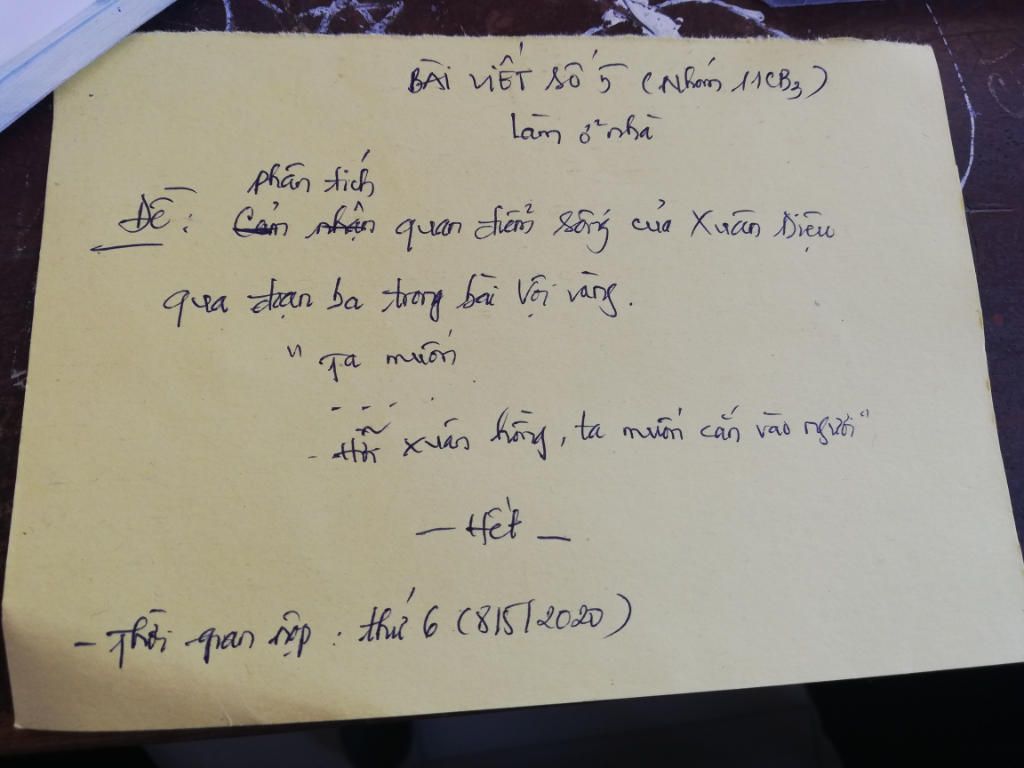 BÀI VIẾT SỐ 5 (Nhóm 11CB3)
Làm ở nhà
phân tích
Đề: Cảm nhận quan điểm sống của Xuân Diệu
qua đoạn ba trong bài Vội vàng.
"Ta muốn
- - - .
- Hỡi xuân hồng, ta muốn cắn vào ngươi"
— Hết —
- Thời gian nộp : thứ 6 (8/5/2020)